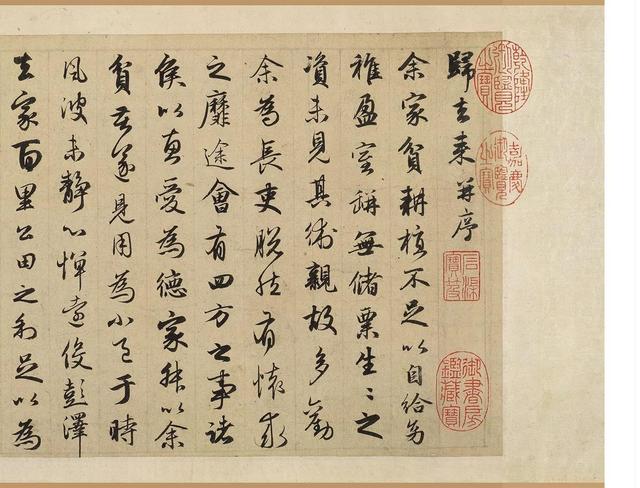 乾隆御覽之寶
嘉慶御覽之寶
石渠寶笈
御書房鑑藏寶
歸去來并序
余家貧耕植不足以自給幼
稚盈室缾無儲粟生〻之
資未見其術親故多勸
余為長吏脫然有懷求
之靡途會有四方之事諸
侯以惠愛為德家叔以余
貧苦遂見用為小邑于時
風波未靜心憚遠役彭澤
去家百里公田之利足以為